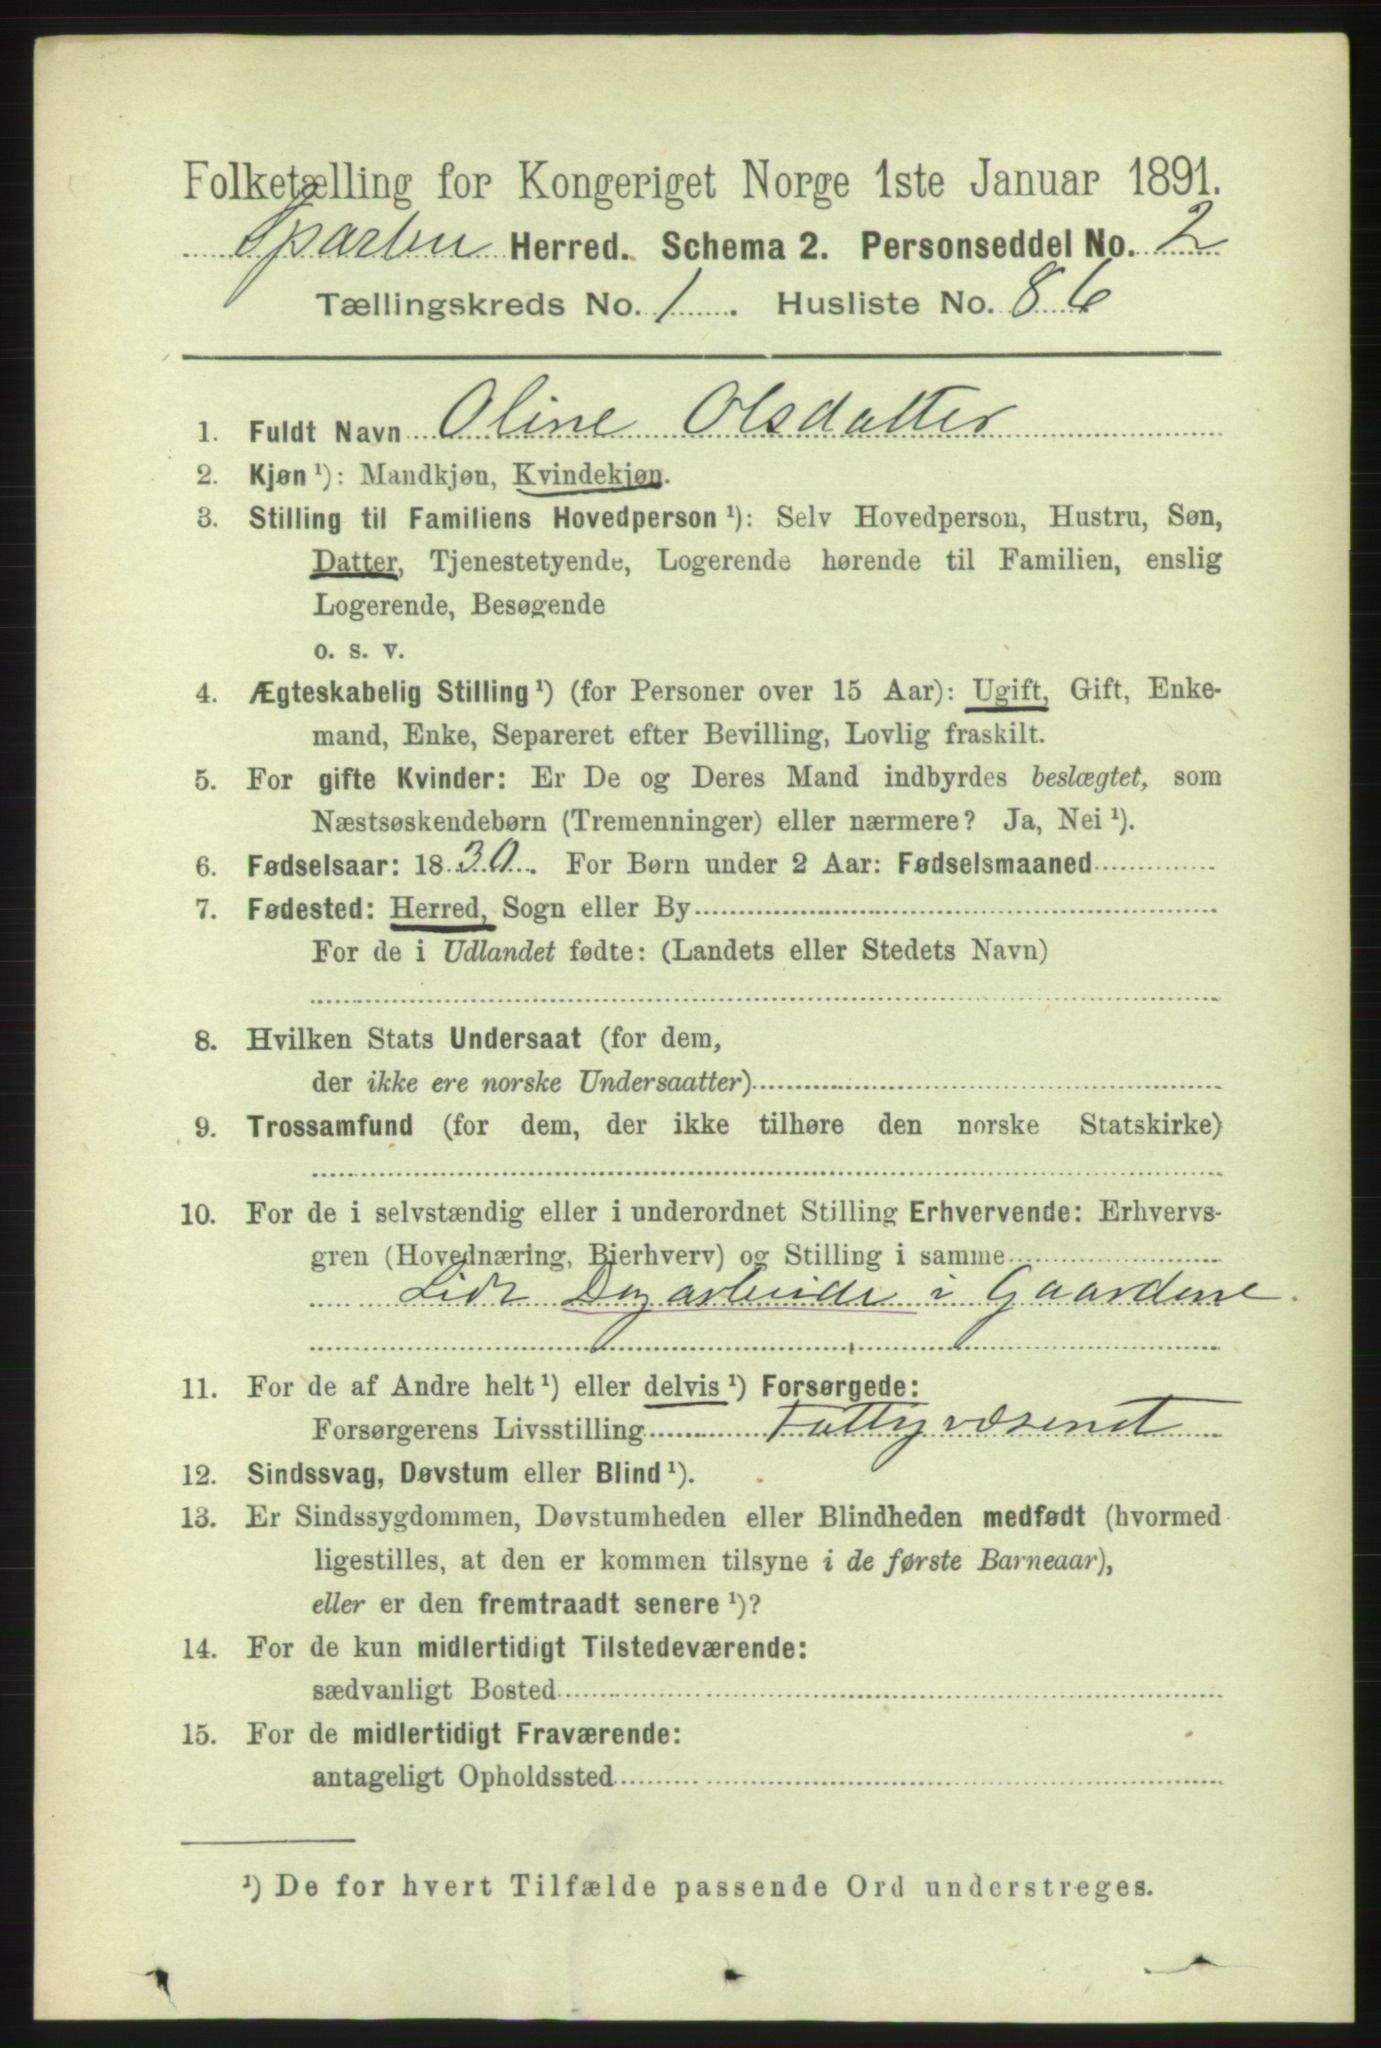 Folketælling for Kongeriget Norge 1ste Januar 1891.
Sparbu Herred. Schema 2. Personseddel No. 2
Tællingskreds No. 1. Husliste No. 86
1. Fuldt Navn Oline Olsdatter
2. Kjøn ¹): Mandkjøn, Kvindekjøn.
3. Stilling til Familiens Hovedperson ¹): Selv Hovedperson, Hustru, Søn,
Datter, Tjenestetyende, Logerende hørende til Familien, enslig
Logerende, Besøgende
o. s. v.
4. Ægteskabelig Stilling ¹) (for Personer over 15 Aar): Ugift, Gift, Enke-
mand, Enke, Separeret efter Bevilling, Lovlig fraskilt.
5. For gifte Kvinder: Er De og Deres Mand indbyrdes beslægtet, som
Næstsøskendebørn (Tremenninger) eller nærmere? Ja, Nei ¹).
6. Fødselsaar: 1830. For Børn under 2 Aar: Fødselsmaaned
7. Fødested: Herred, Sogn eller By
For de i Udlandet fødte: (Landets eller Stedets Navn)
8. Hvilken Stats Undersaat (for dem,
der ikke ere norske Undersaatter)
9. Trossamfund (for dem, der ikke tilhøre den norske Statskirke)
10. For de i selvstændig eller i underordnet Stilling Erhvervende: Erhvervs-
gren (Hovednæring, Bierhverv) og Stilling i samme
Lidt Dagarbeide i Gaardene.
11. For de af Andre helt ¹) eller delvis ¹) Forsørgede:
Forsørgerens Livsstilling Fattigvæsenet
12. Sindssvag, Døvstum eller Blind ¹).
13. Er Sindssygdommen, Døvstumheden eller Blindheden medfødt (hvormed
ligestilles, at den er kommen tilsyne i de første Barneaar),
eller er den fremtraadt senere ¹)?
14. For de kun midlertidigt Tilstedeværende:
sædvanligt Bosted
15. For de midlertidigt Fraværende:
antageligt Opholdssted
¹) De for hvert Tilfælde passende Ord understreges.